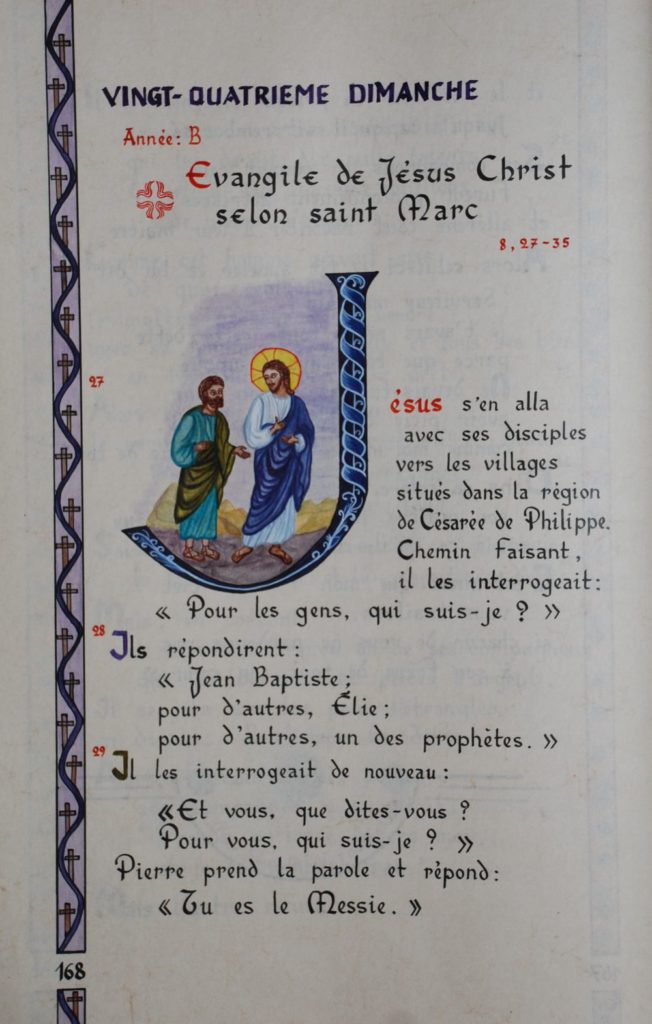 VINGT-QUATRIEME DIMANCHE
Année: B
Evangile de Jésus Christ
selon saint Marc
8, 27-35
27
Jésus s'en alla
avec ses disciples
vers les villages
situés dans la région
de Césarée de Philippe.
Chemin faisant,
il les interrogeait:
« Pour les gens, qui suis-je ? »
28
Ils répondirent :
« Jean Baptiste;
pour d'autres, Élie;
pour d'autres, un des prophètes. »
29
Il les interrogeait de nouveau :
«Et vous, que dites-vous ?
Pour vous, qui suis-je ? »
Pierre prend la parole et répond:
« Tu es le Messie. »
168